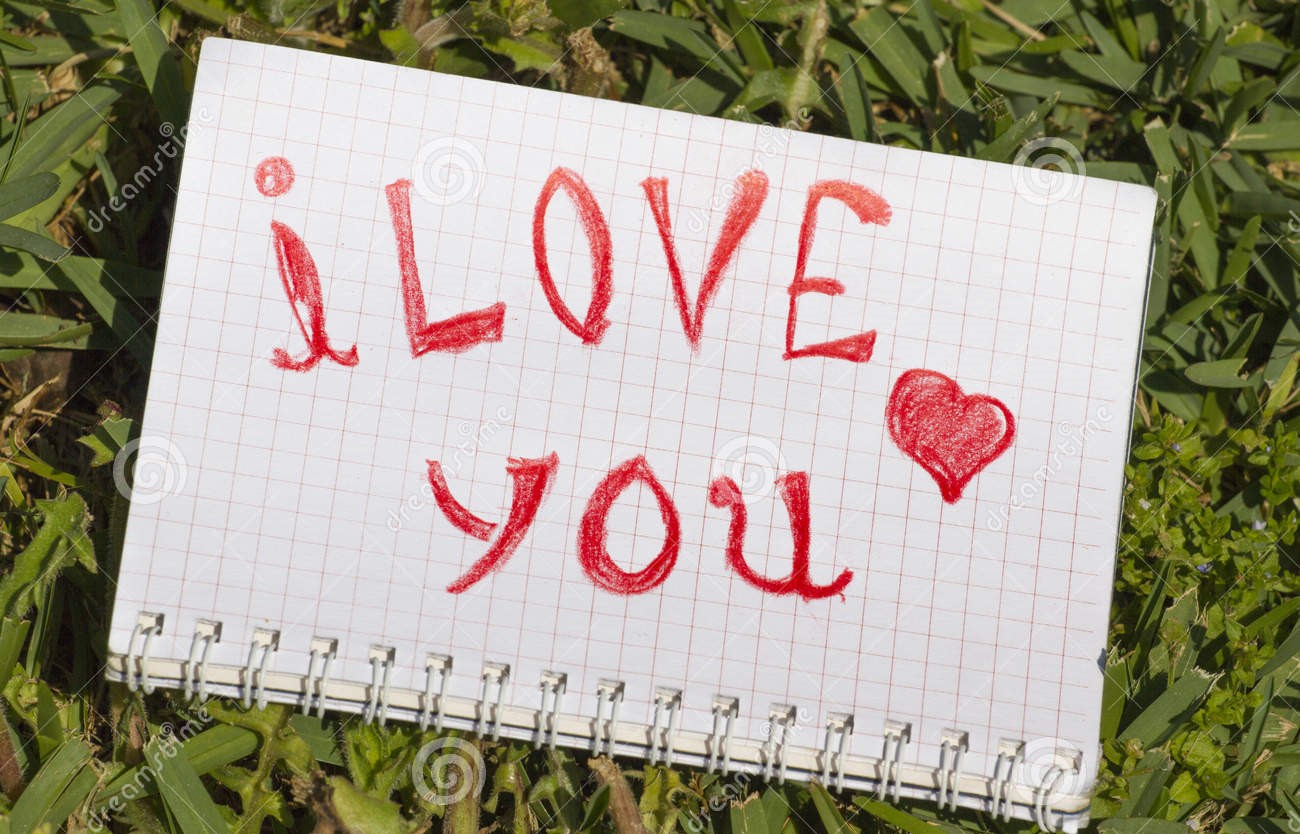 i LOVE
you
dreamstime
dreamstime
dreamstime
dreamstime
dreamstime
dreamstime
dreamstime